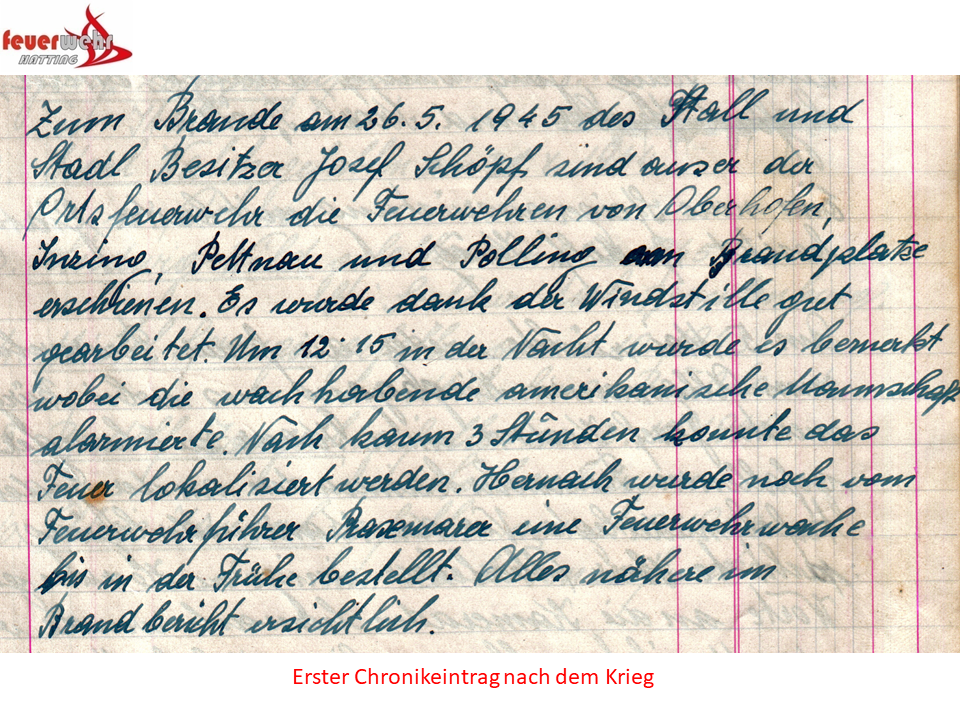 feuerwehr
HATTING
Zum Brande am 26. 5. 1945 des Stall und
Stadl Besitzer Josef Schöpf sind auser der
Ortsfeuerwehr die Feuerwehren von Oberhofen,
Inzing, Pettnau und Polling am Brandplatze
erschienen. Es wurde dank der Windstille gut
gearbeitet. Um 12·15 in der Nacht wurde es bemerkt
wobei die wachhabende amerikanische Mannschaft
alarmierte. Nach kaum 3 Stunden konnte das
Feuer lokalisiert werden. Hernach wurde noch vom
Feuerwehrführer eine Feuerwehrwache
bis in der Frühe bestellt. Alles nähere im
Brandbericht ersichtlich.
Erster Chronikeintrag nach dem Krieg